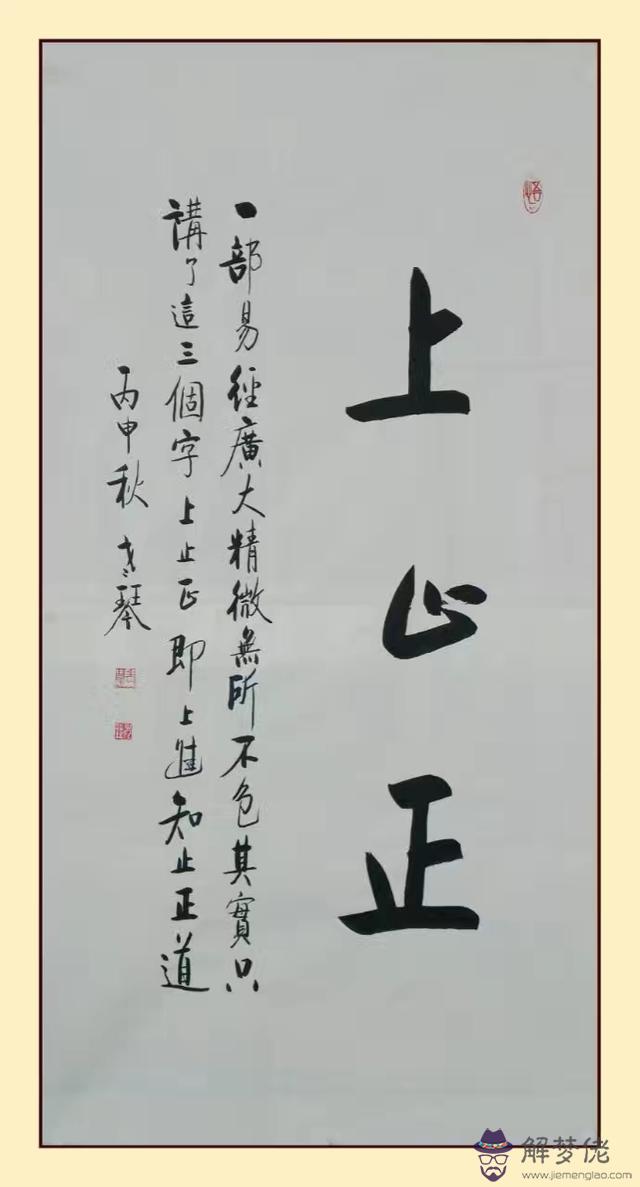 上止正
一部易經廣大精微無所不包其實只
講了這三個字上止正即上進知止正道
丙申秋 琴
解梦佬
www.jiemenglao.com